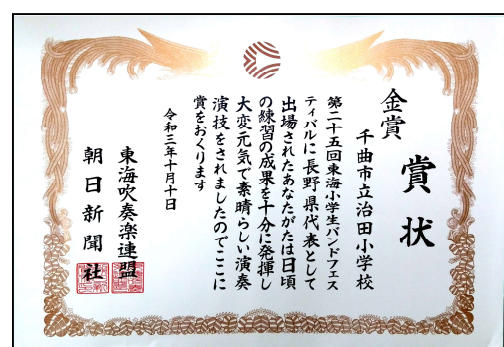 賞状
金賞
千曲市立治田小学校
第二十五回東海小学生バンドフェス
ティバルに長野県代表として
出場されたあなたがたは日頃
の練習の成果を十分に発揮し
大変元気で素晴らしい演奏
演技をされましたのでここに
賞をおくります
令和三年十月十日
東海吹奏楽連盟
朝日新聞社